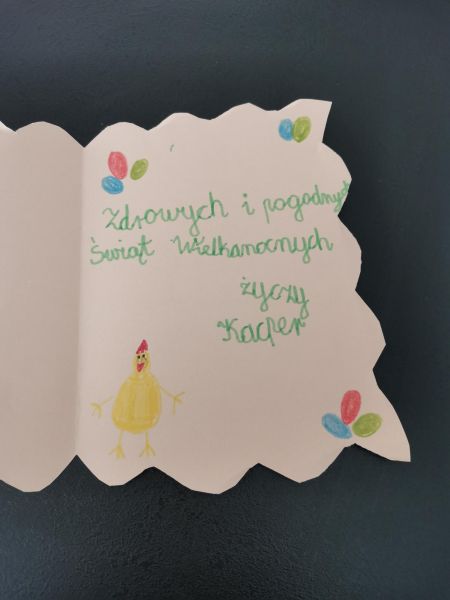 Zdrowych i pogodnych
Świąt Wielkanocnych
życzy
Kacper